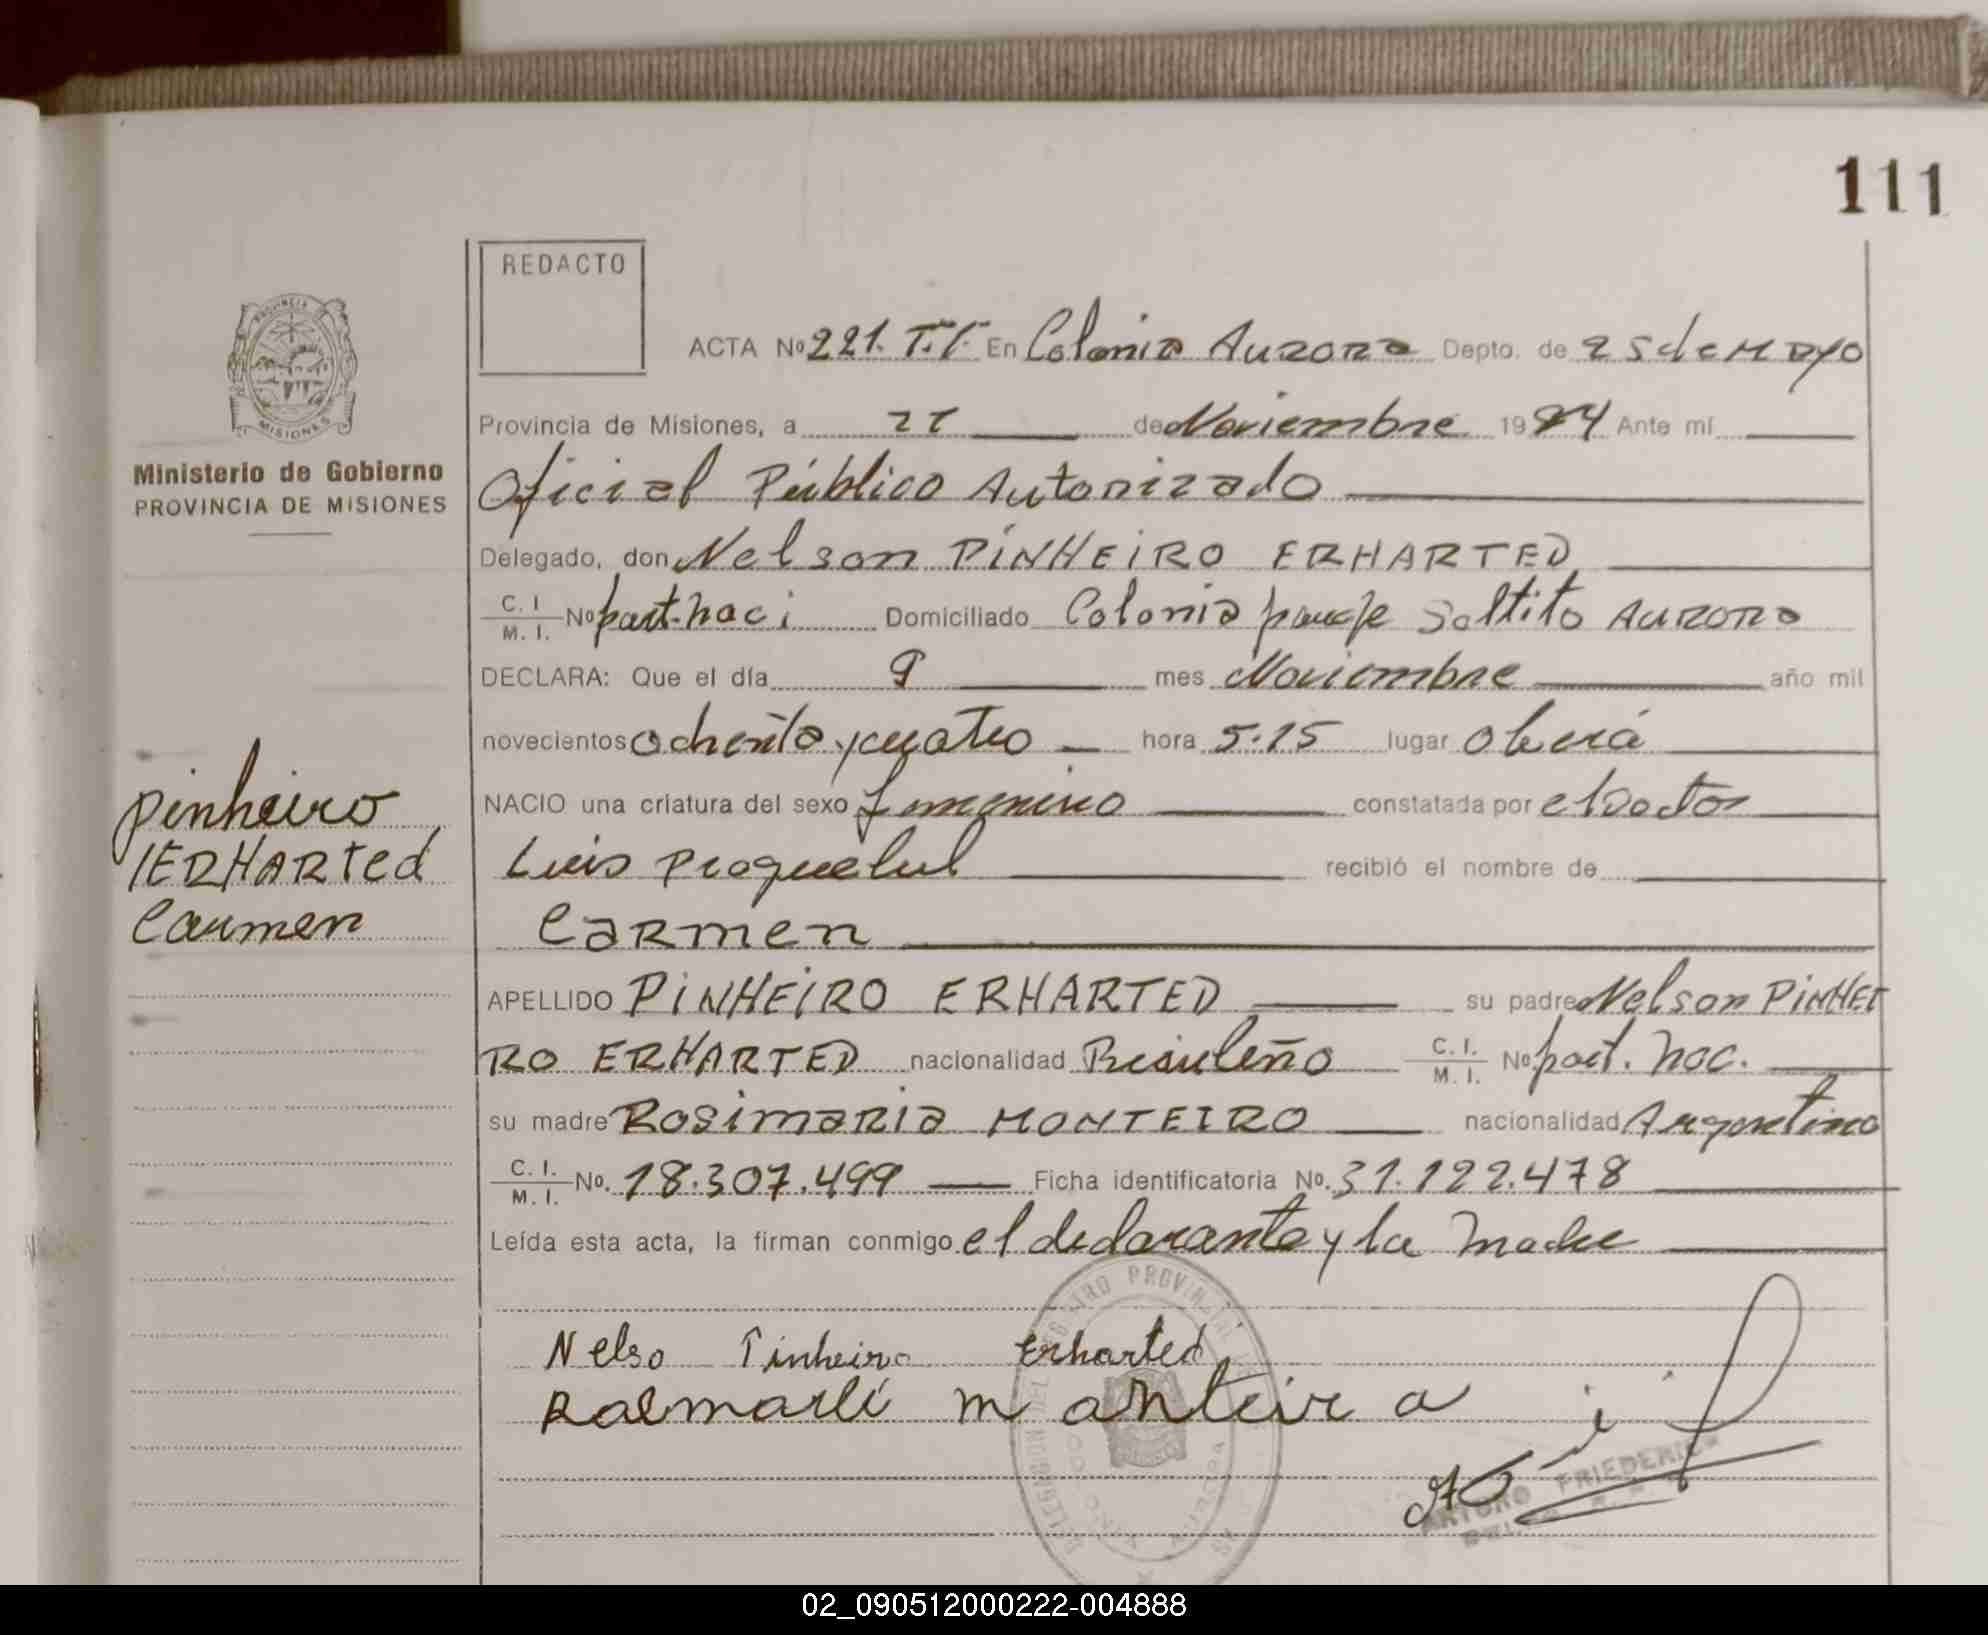 111
REDACTO
ACTA Nº 221. T.I. En Colonia Aurora Depto. de 25 de Mayo
Provincia de Misiones, a de Noviembre 1984 Ante mí
Ministerio de Gobierno
PROVINCIA DE MISIONES
Oficial Público Autorizado
Delegado, don Nelson PINHEIRO ERHARTED
C. I. M. I. Nº part. naci Domiciliado Colonia paraje Saltito AURORA
DECLARA: Que el día 9 mes Noviembre año mil
novecientos ochenta y cuatro hora 5.15 lugar Oberá
NACIO una criatura del sexo femenino constatada por el Doctor
Luis recibió el nombre de
Carmen
pinheiro
ERHARTed
Carmen
APELLIDO PINHEIRO ERHARTED su padre Nelson PINHEI
RO ERHARTED nacionalidad Brasileño C. I. M. I. Nº part. nac.
su madre Rosimaria MONTEIRO nacionalidad Argentina
C. I. M. I. No. 18.307.499 Ficha identificatoria No. 31.122.478
Leída esta acta, la firman conmigo el declarante y la madre
Nelso Pinheiro Erharted
ARTURO FRIEDERICH
MISIONES
02_090512000222-004888